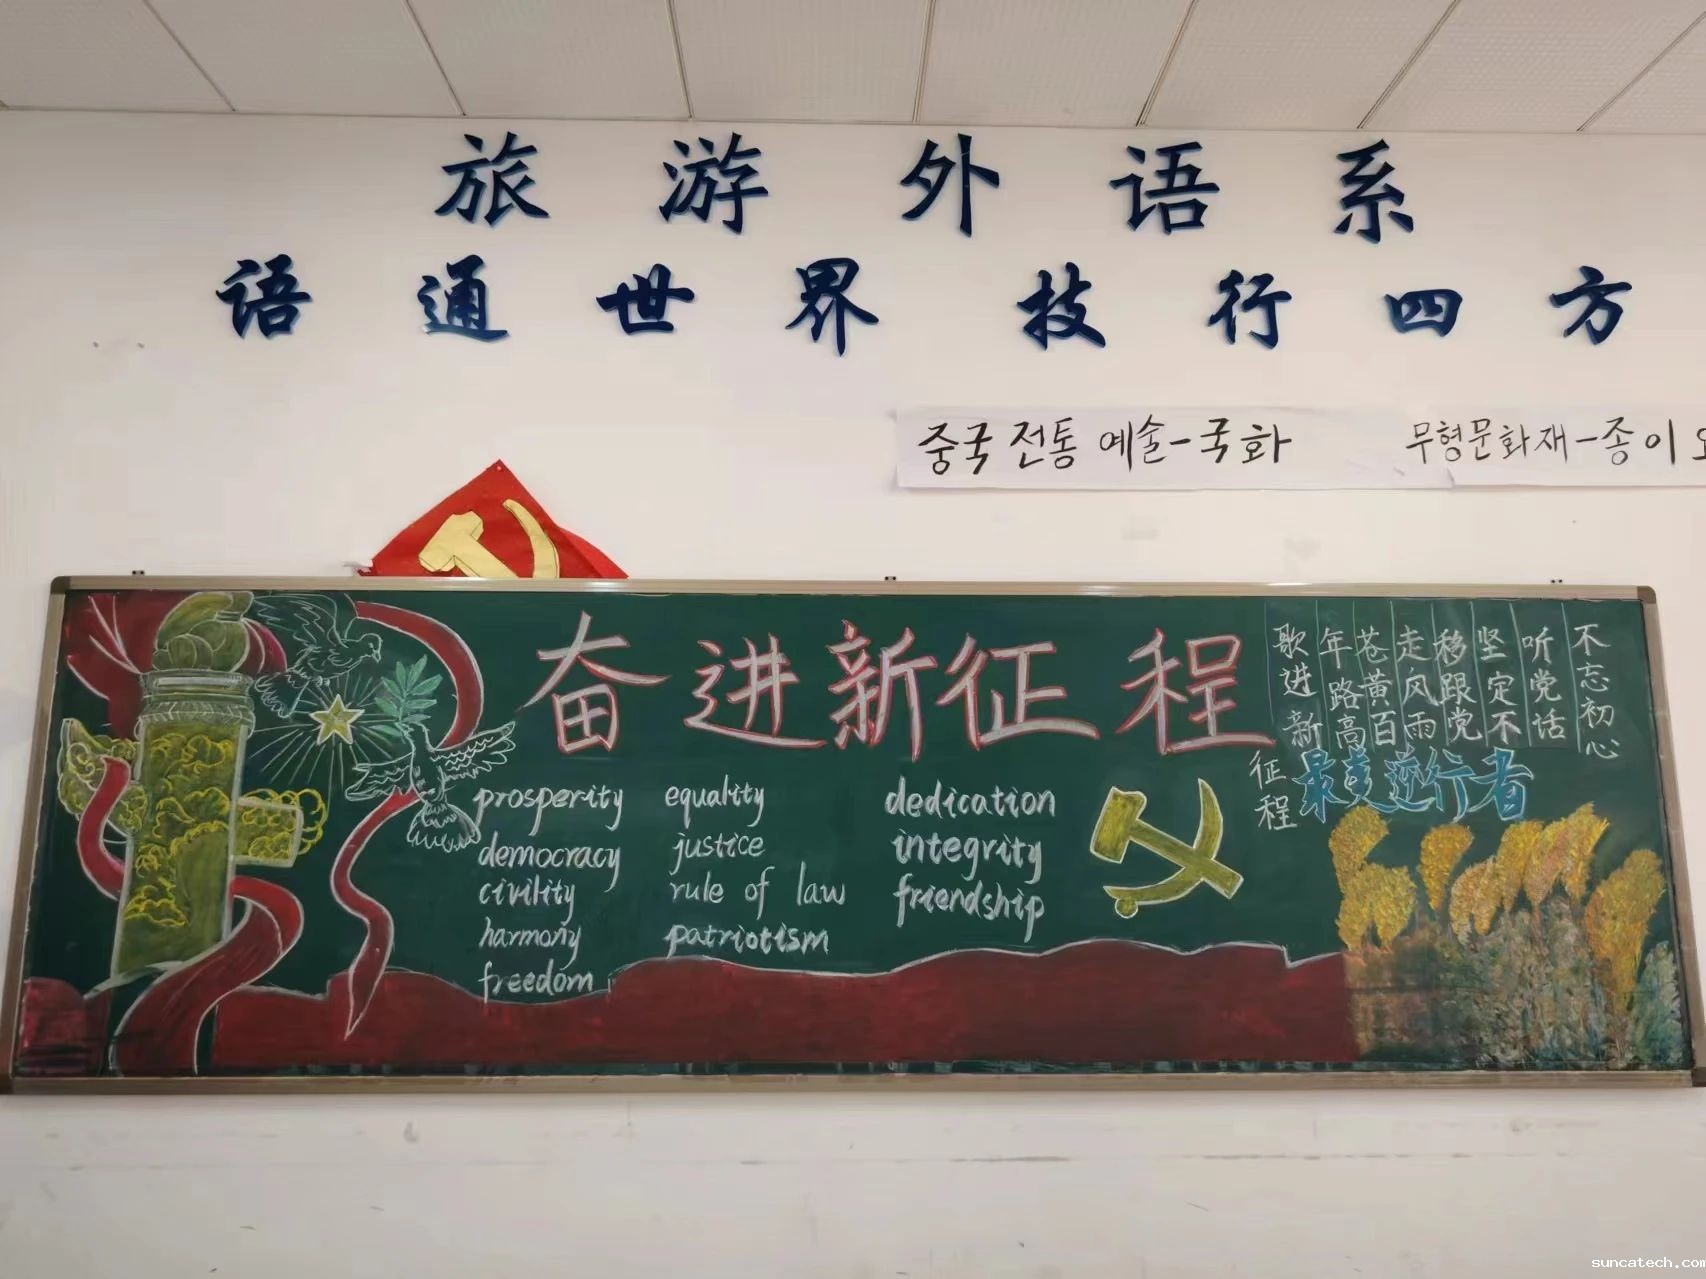 旅游外语系
语通世界 技行四方
중국 전통 예술-국화
무형문화재-종이
奋进新征程
prosperity
democracy
civility
harmony
freedom
equality
justice
rule of law
patriotism
dedication
integrity
friendship
不忘初心
听党话
坚定不
移跟党
走风雨
苍黄百
年路高
歌进新
征程
最美逆行者
suncatech.com